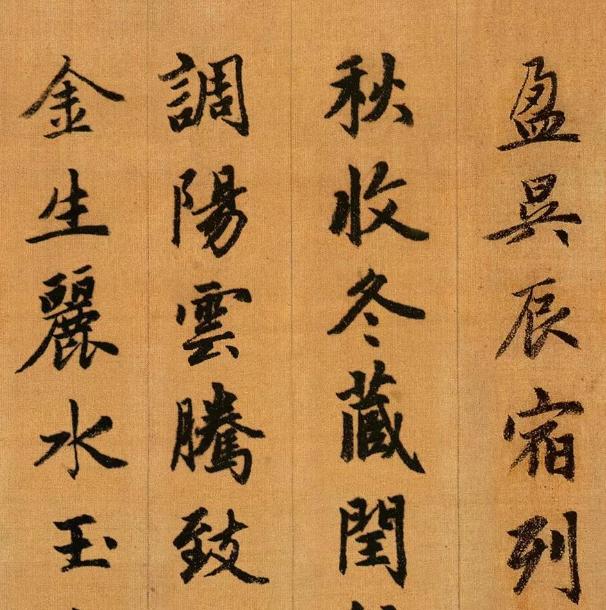 盈昃辰宿列
秋收冬蔵閏
調陽雲騰致
金生麗水玉